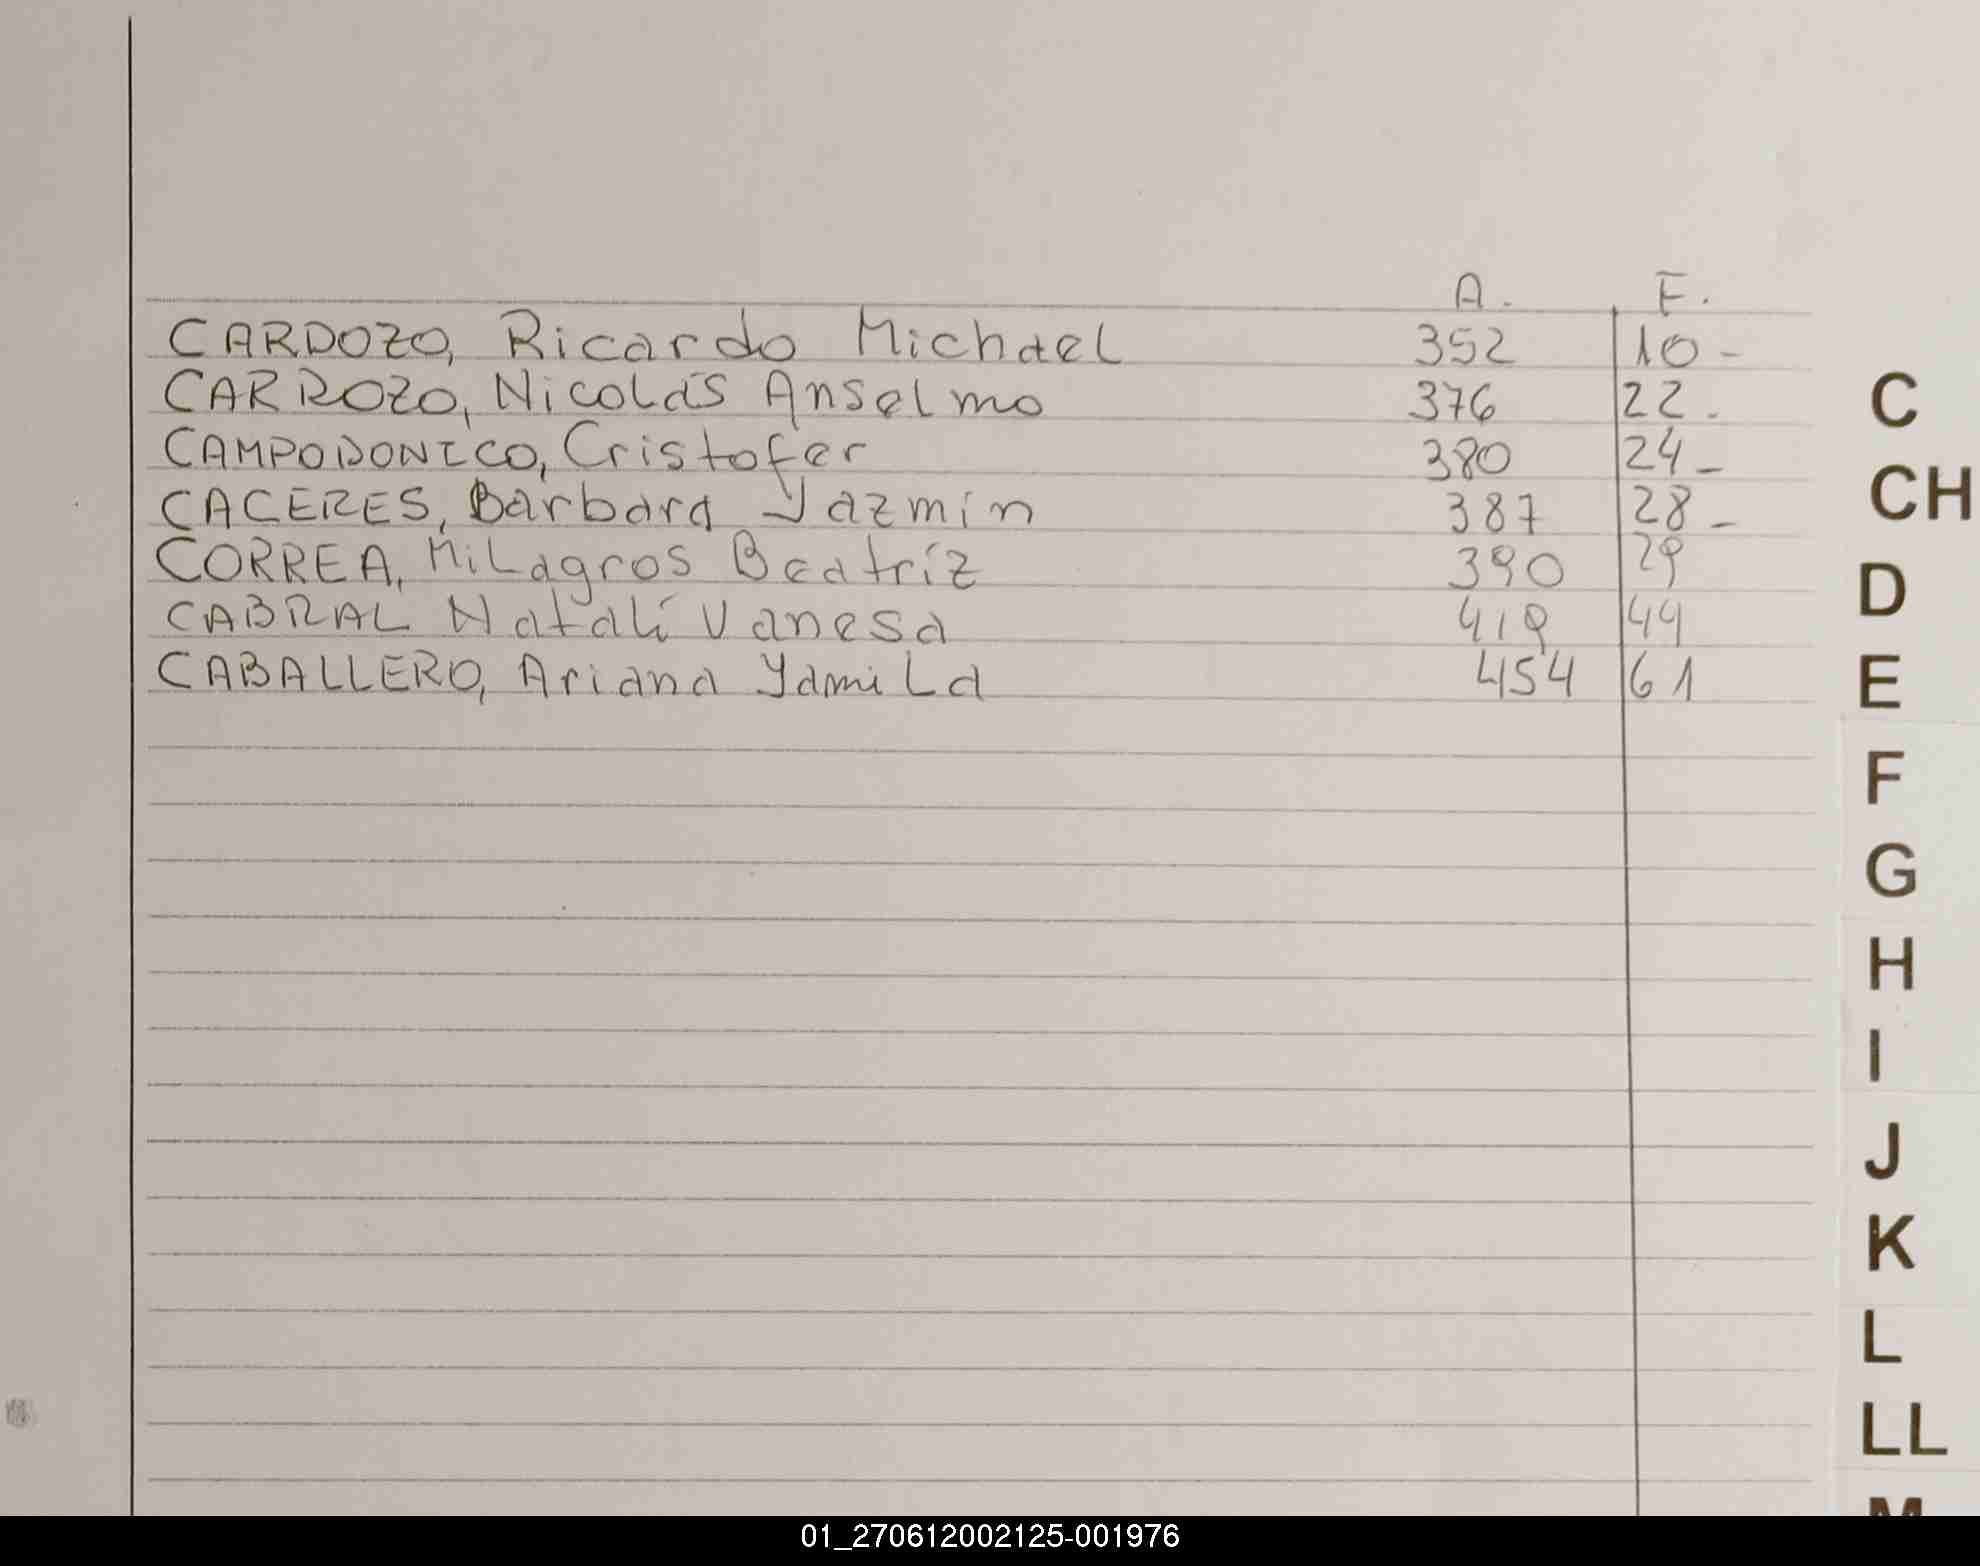 A. F.
CARDOZO, Ricardo Michael 352 10-
CARROZO, Nicolás Anselmo 376 22.
CAMPODONICO, Cristofer 380 24-
CACERES, Barbara Yazmín 387 28-
CORREA, Milagros Beatríz 390 29
CABRAL Natalí Vanesa 419 44
CABALLERO, Ariana Yamila 454 61
C
CH
D
E
F
G
H
I
J
K
L
LL
M
01_270612002125-001976